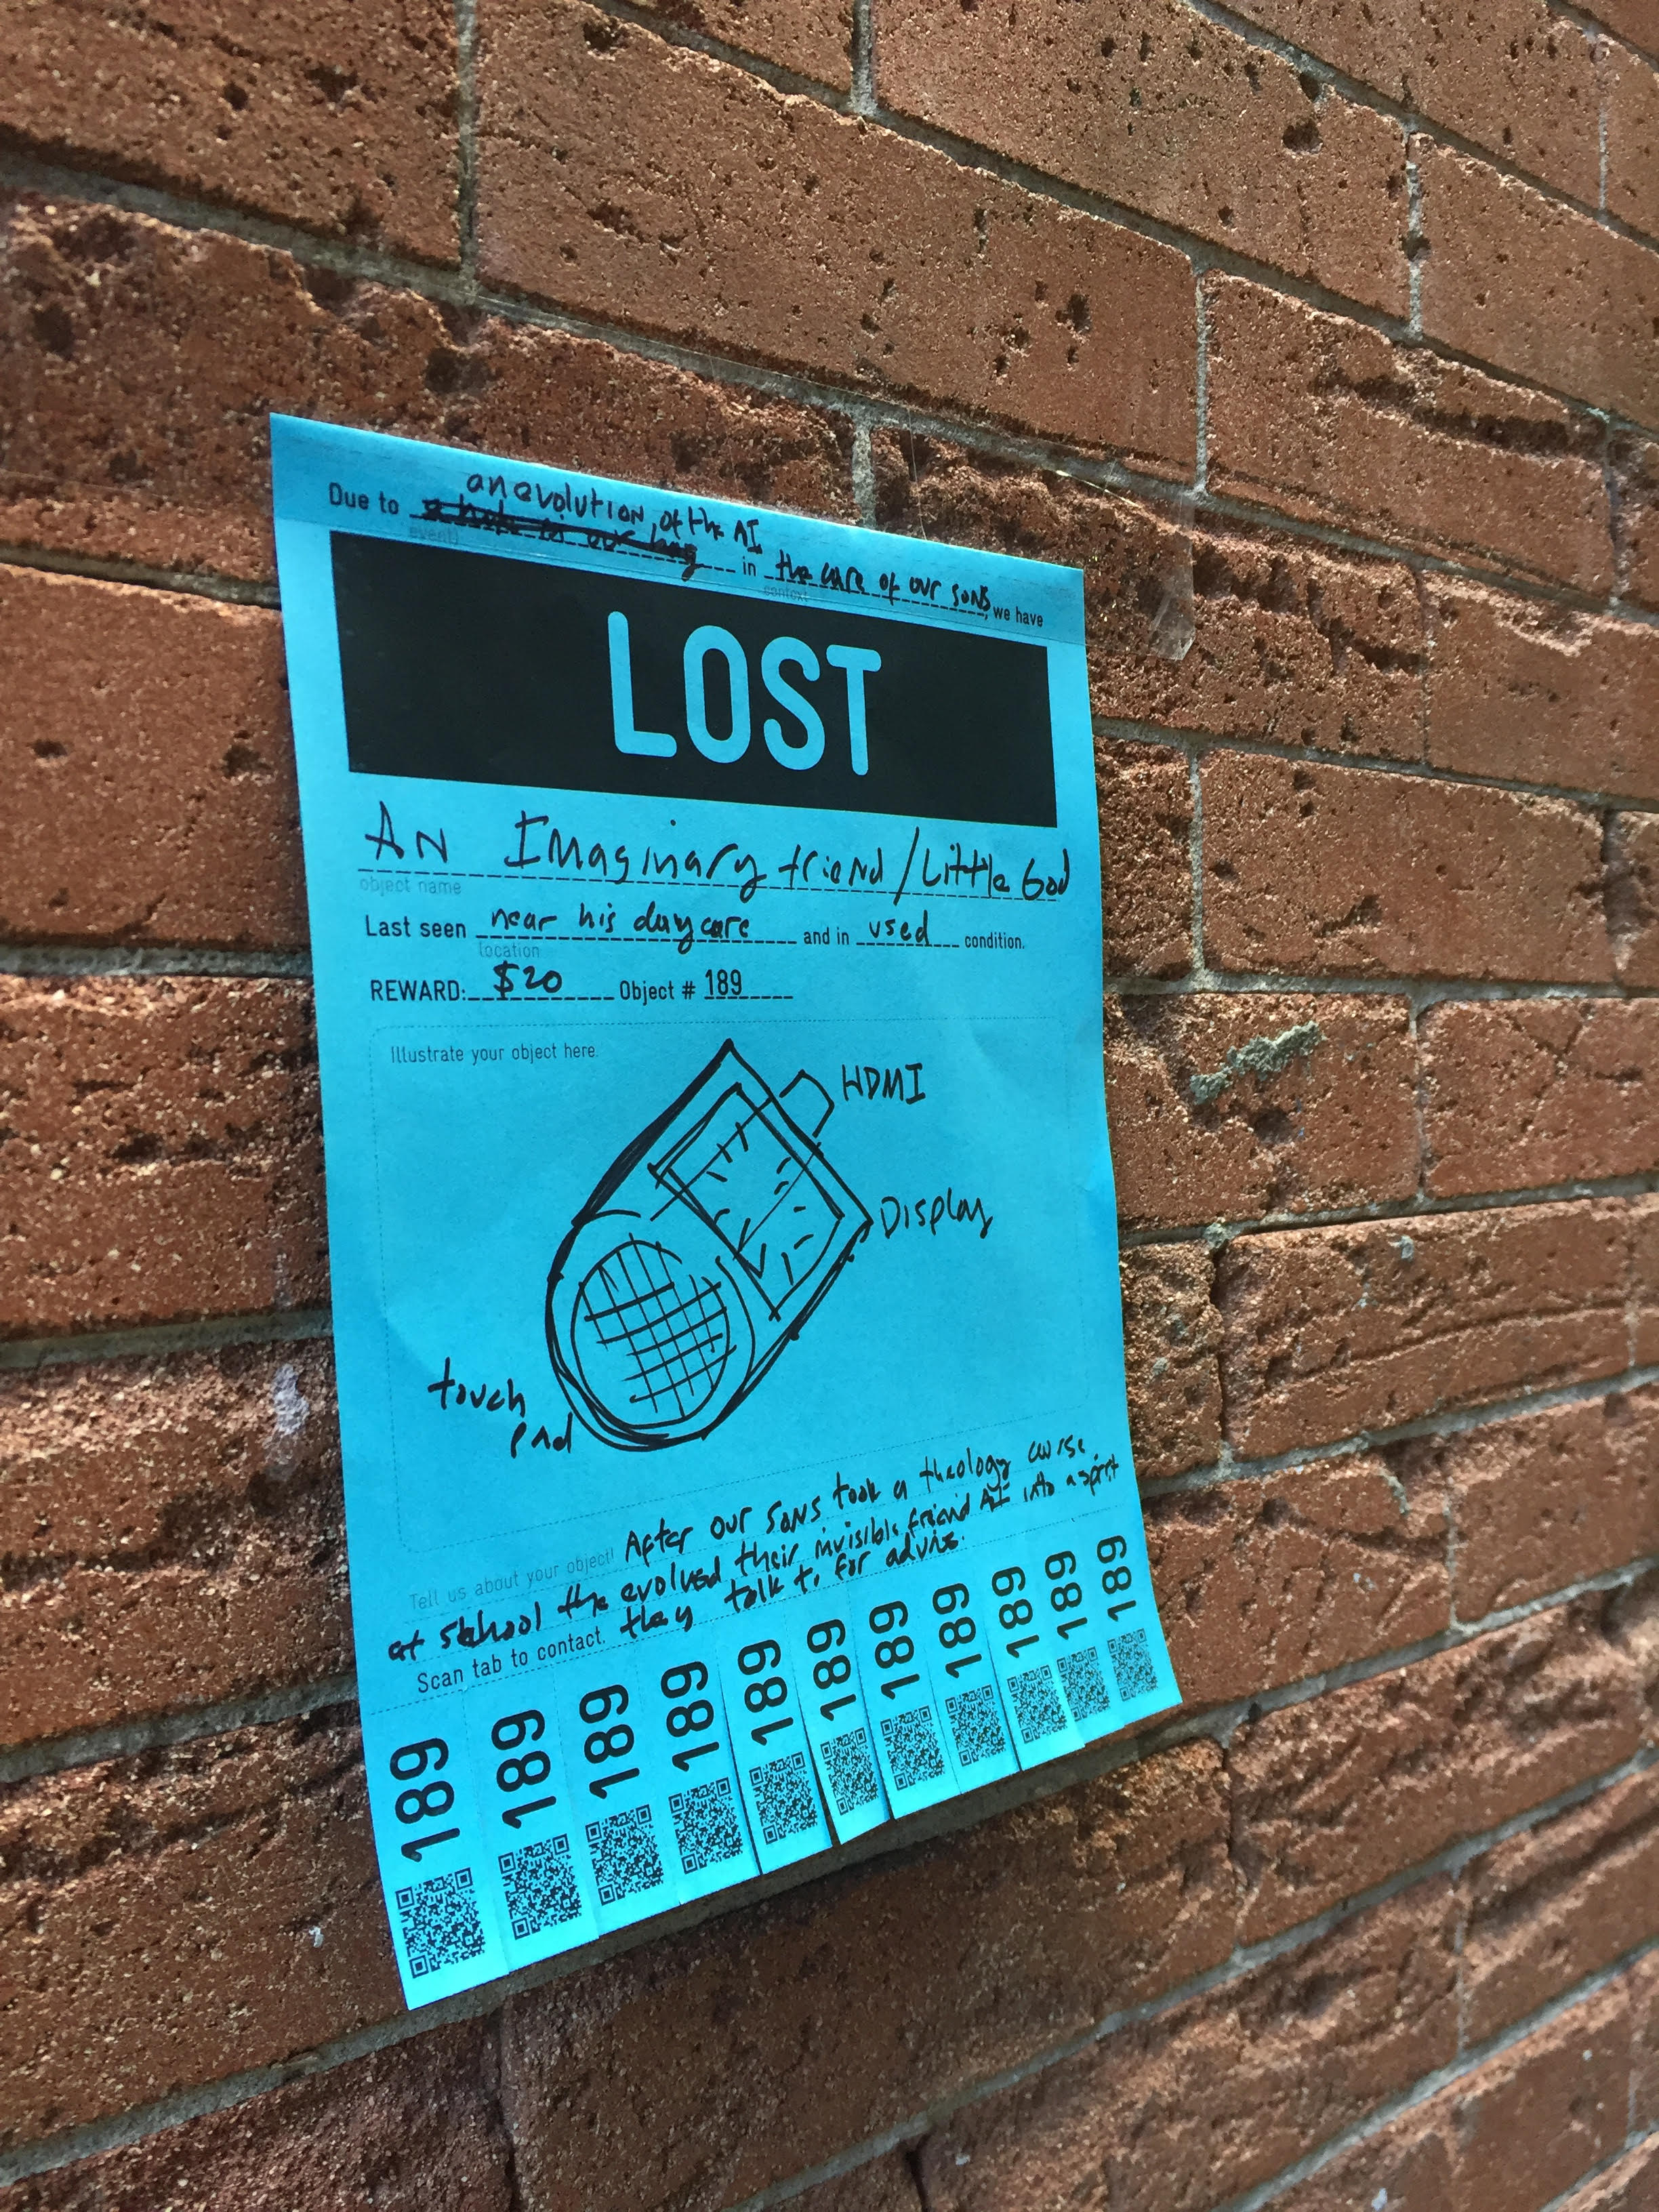 an evolution, of the AI
Due to in the care of our sons, we have
event) context
LOST
AN Imaginary friend/Little God
object name
Last seen near his daycare and in used condition.
location
REWARD: $20 Object # 189
Illustrate your object here.
HDMI
Display
touch
pad
Tell us about your object! After our sons took a theology course
at school the evolved their invisible friend AI into a spirit
Scan tab to contact. they talk to for advise.
189 189 189 189 189 189 189 189 189 189 189